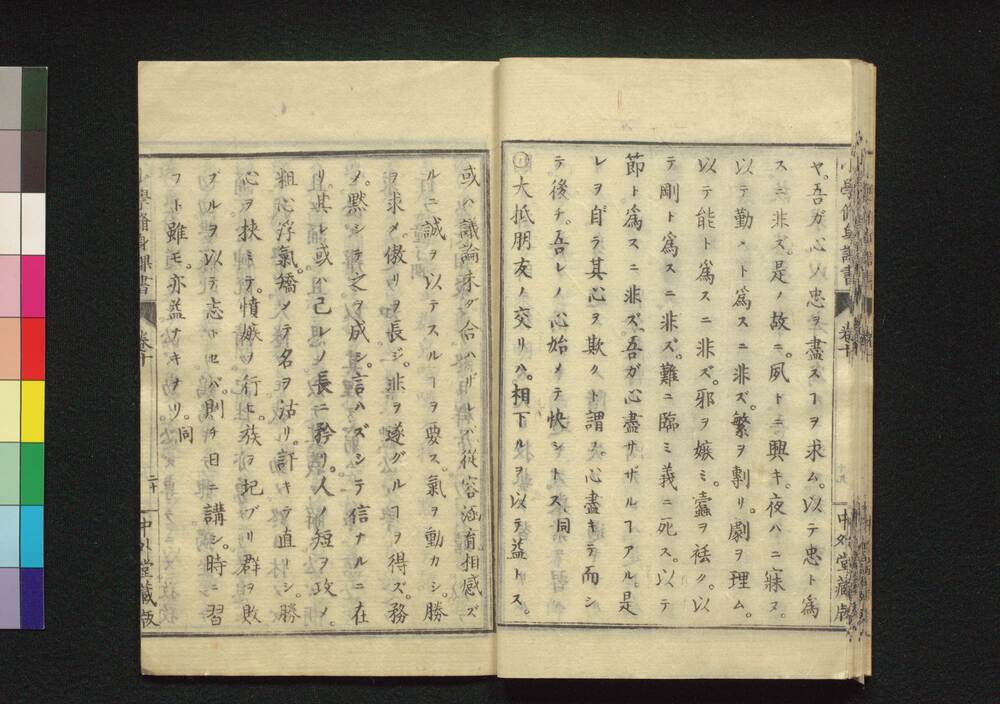 小學修身課書 卷十 十九 中外堂藏版
ヤ。吾ガ心ノ忠ヲ盡スヿヲ求ム。以テ忠ト爲
スニ非ス。是ノ故ニ。夙トニ興キ。夜ハニ寐ヌ。
以テ勤メト爲スニ非ズ。繁ヲ剸リ。劇ヲ理ム。
以テ能ト爲スニ非ズ。邪ヲ嫉ミ。蠹ヲ袪ク。以
テ剛ト爲スニ非ズ。難ニ臨ミ義ニ死ス。以テ
節ト爲スニ非ズ。吾ガ心盡サザルヿアル。是
レヲ自ラ其心ヲ欺クト謂フ。心盡キテ而シ
テ後チ。吾レノ心始メテ快シトス。同
大抵朋友ノ交リハ。相下ルヲ以テ益トス。
或ハ議論未ダ合ハザレバ從容涵育相感ズ
ルニ誠ヲ以テスルヿヲ要ス。氣ヲ動カシ。勝
ヲ求メ。傲リヲ長ジ。非ヲ遂グルヿヲ得ズ。務
メ。黙シテ之ヲ成シ。言ハズシテ信ナルニ在
リ。其レ或ハ己レノ長ニ矜リ。人ノ短ヲ攻メ。
粗心浮氣。矯メテ名ヲ沽リ。訐キテ直トシ。勝
心ヲ挾ミテ。憤嫉ヲ行ヒ。族ヲ圮ブリ群ヲ敗
ブルヲ以テ志トセバ。則チ日ニ講シ。時ニ習
フト雖モ。亦益ナキナリ。同
小學修身課書 卷十 二十 中外堂藏版